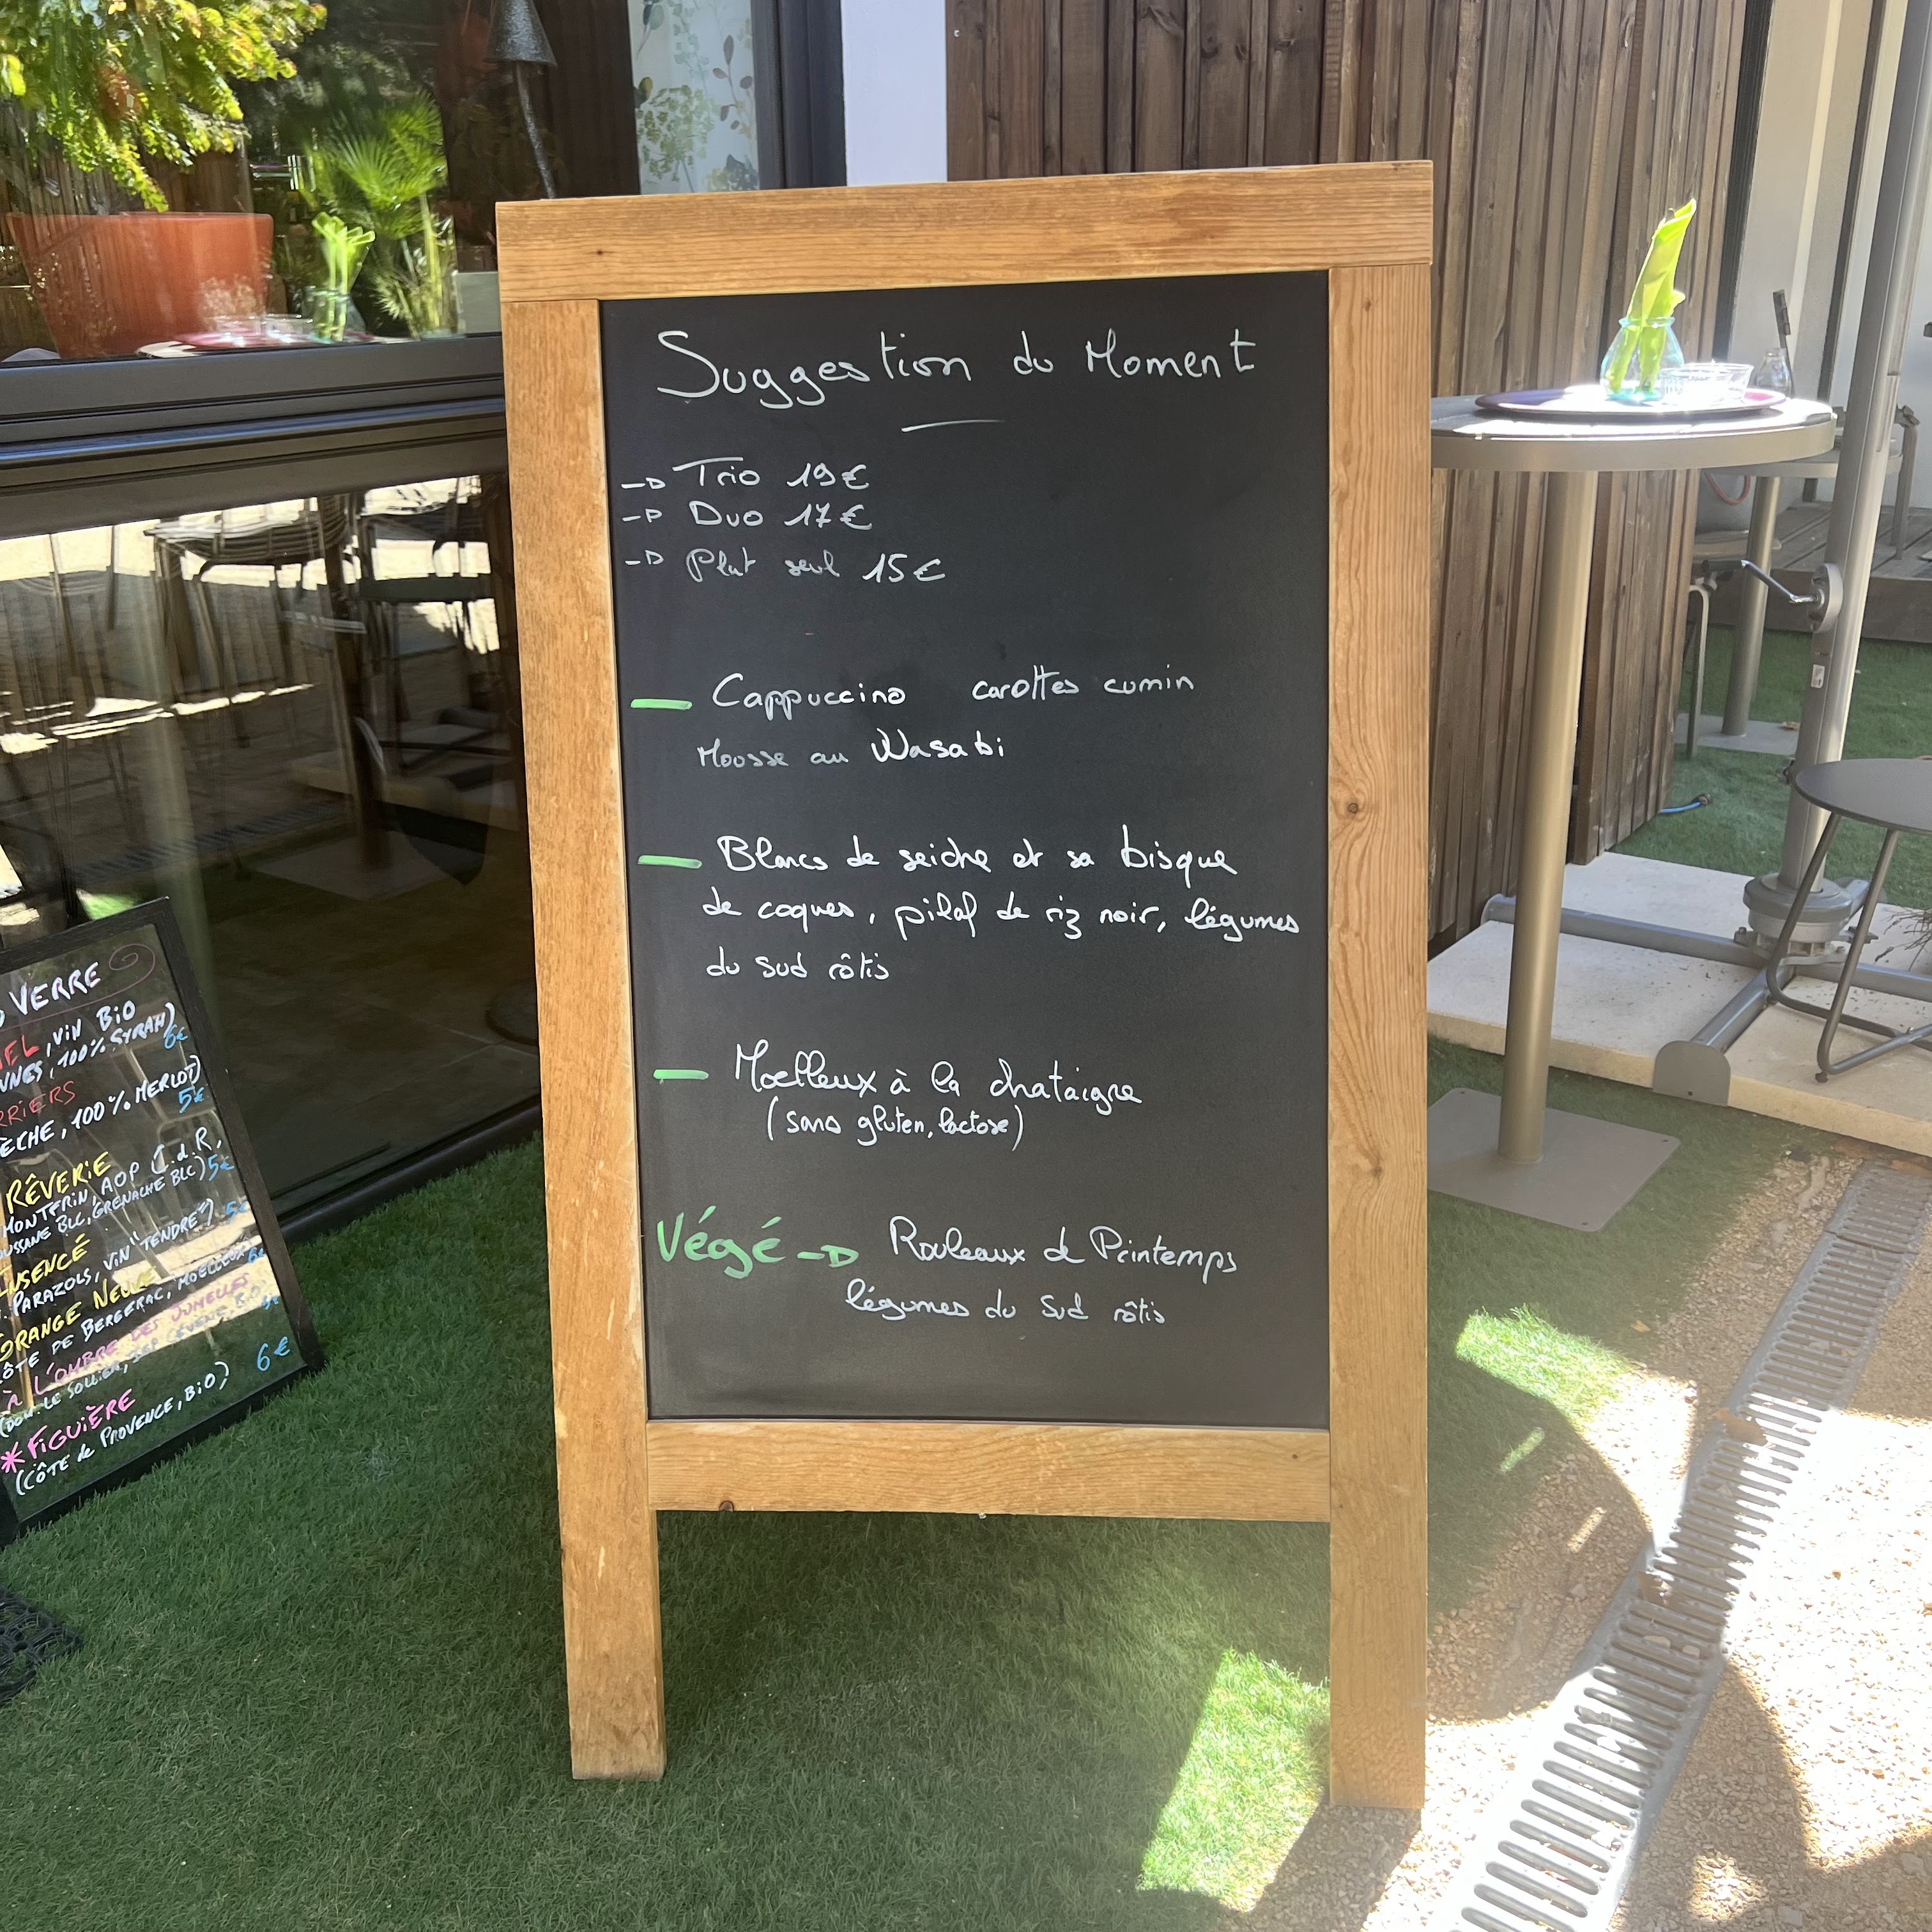 Suggestion du Moment
Trio 19€
Duo 17€
Plat seul 15€
Cappuccino carottes cumin
Mousse au Wasabi
Blancs de seiche et sa bisque
de coques, pilaf de riz noir, légumes
du Sud rôtis
Moelleux à la chataigne
(sans gluten, lactose)
Végé Rouleaux d Printemps
légumes du Sud rôtis
VERRE
, ViN BiO
, 100% SYRAH)
6€
, 100% MERLOT)
5€
RÊVERiE
MONTFRIN, AOP C.d.R,
GRENACHE BLC) 5€
PARAZOLS, ViN "TENDRE") 5€
ORANGE NEUVE
CÔTE DE BERGERAC, MOELLEUX 6€
À L'OMBRE DES JUMELLES
6€
*FiGUiÈRE
(CÔTE de PROVENCE, BiO)